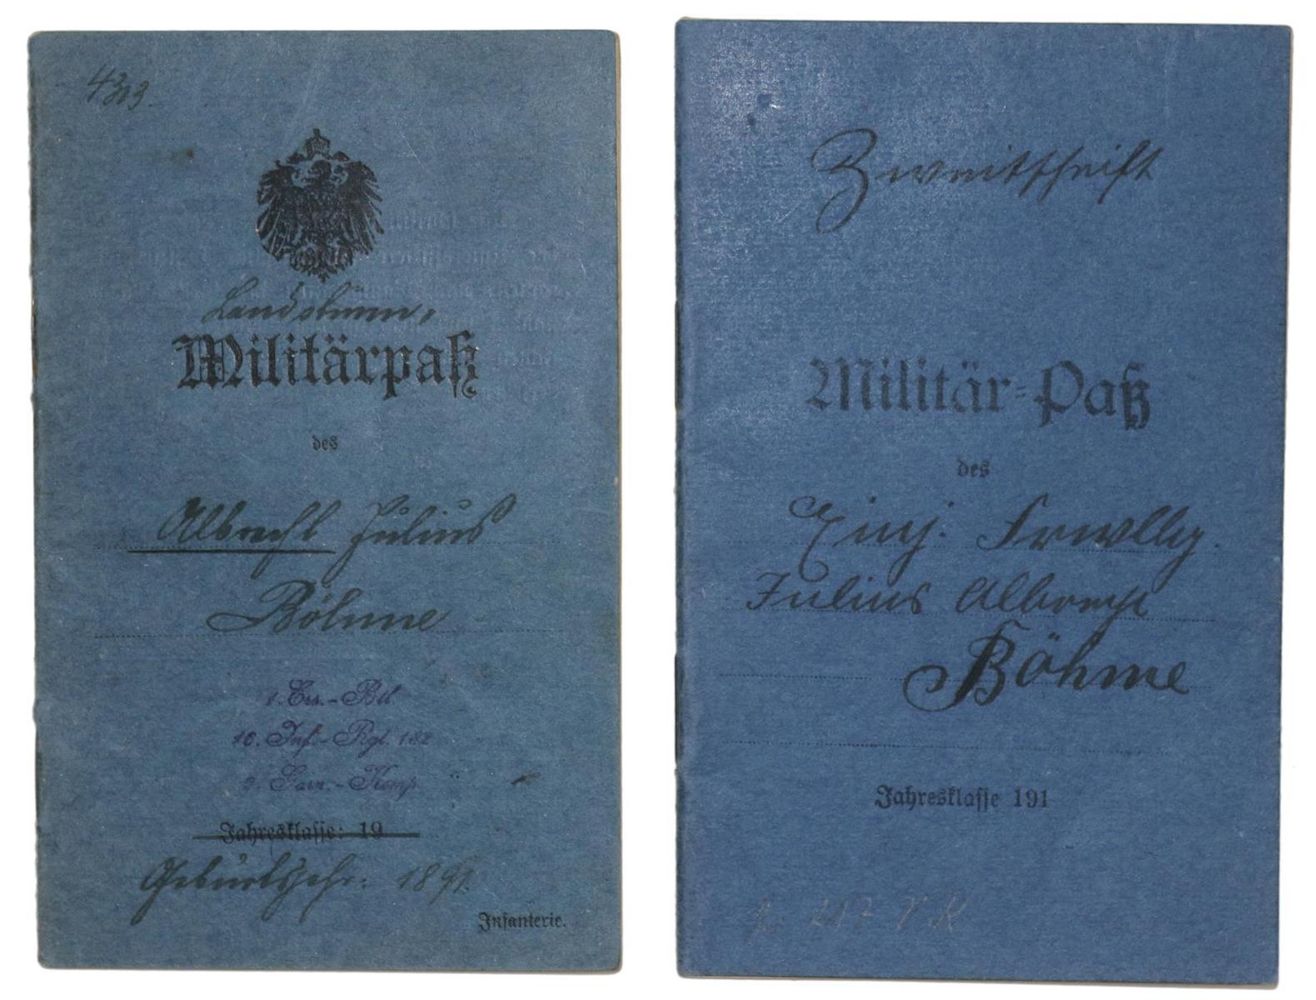 4303
Landsturm,
Militärpaß
des
Albrecht Julius
Böhme
1. Ers.-Btl
16. Inf.-Rgt. 182
2. Garn.-Komp.
Jahresklasse: 19
Geburtsjahr: 1891
Infanterie.
Zweitschrift
Militär-Paß
des
Einj. Frwllg.
Julius Albrecht
Böhme
Jahresklasse 191